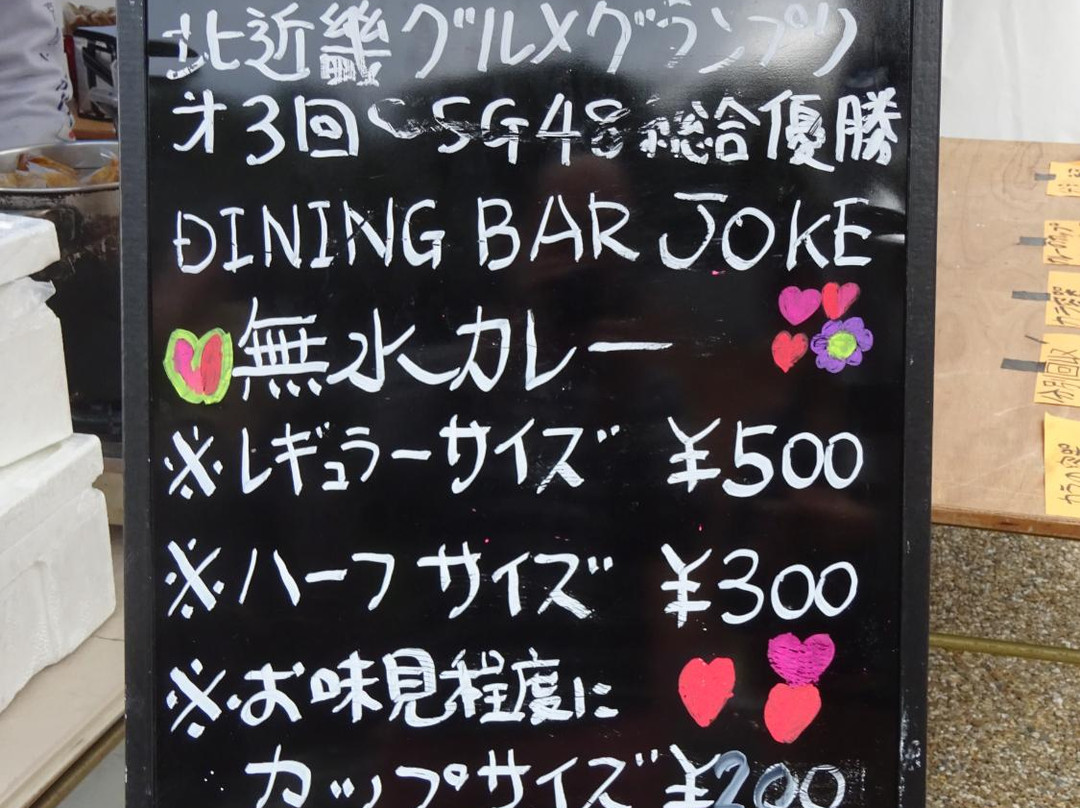 北近畿グルメグランプリ
才3回 SSG48総合優勝
DINING BAR JOKE
無水カレー
※レギュラーサイズ ¥500
※ハーフサイズ ¥300
※お味見程度に
カップサイズ ¥200
分別回収